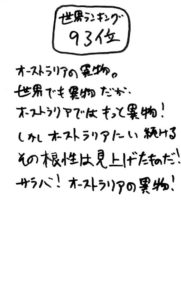 世界ランキング
93位
オーストラリアの異物。
世界でも異物だが、
オーストラリアではもっと異物!
しかしオーストラリアにい続ける
その根性は見上げたものだ!
サラバ! オーストラリアの異物!